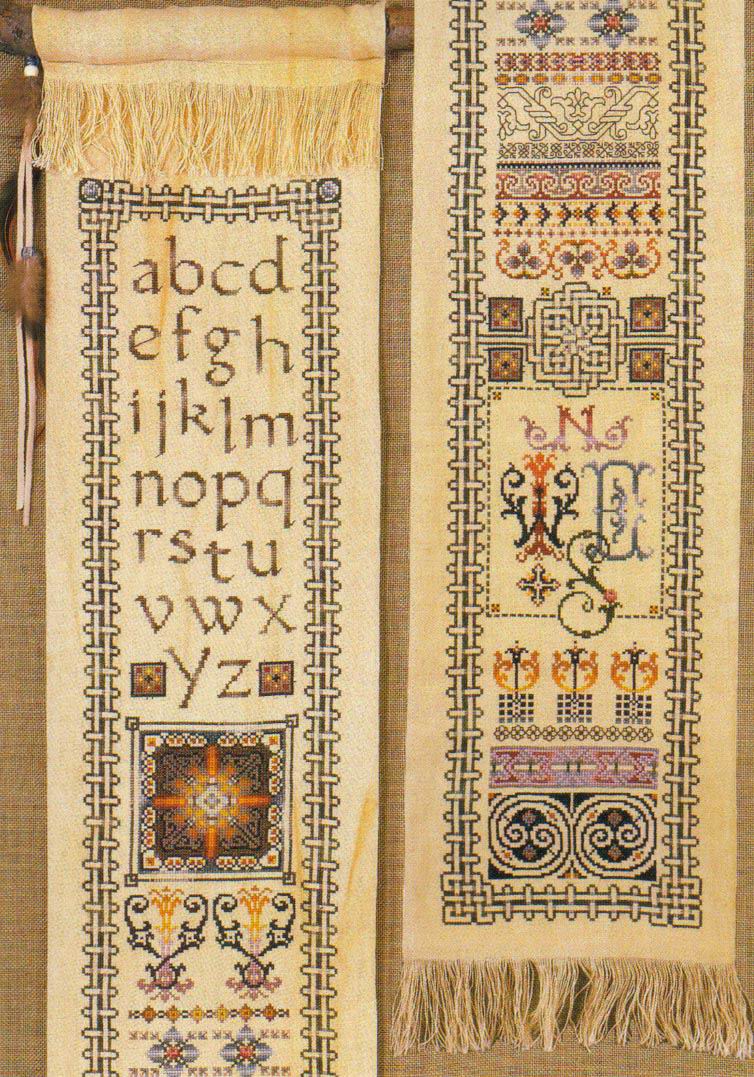 abcd
efgh
ijklm
nopq
rstu
vwx
yz
N
I E
S